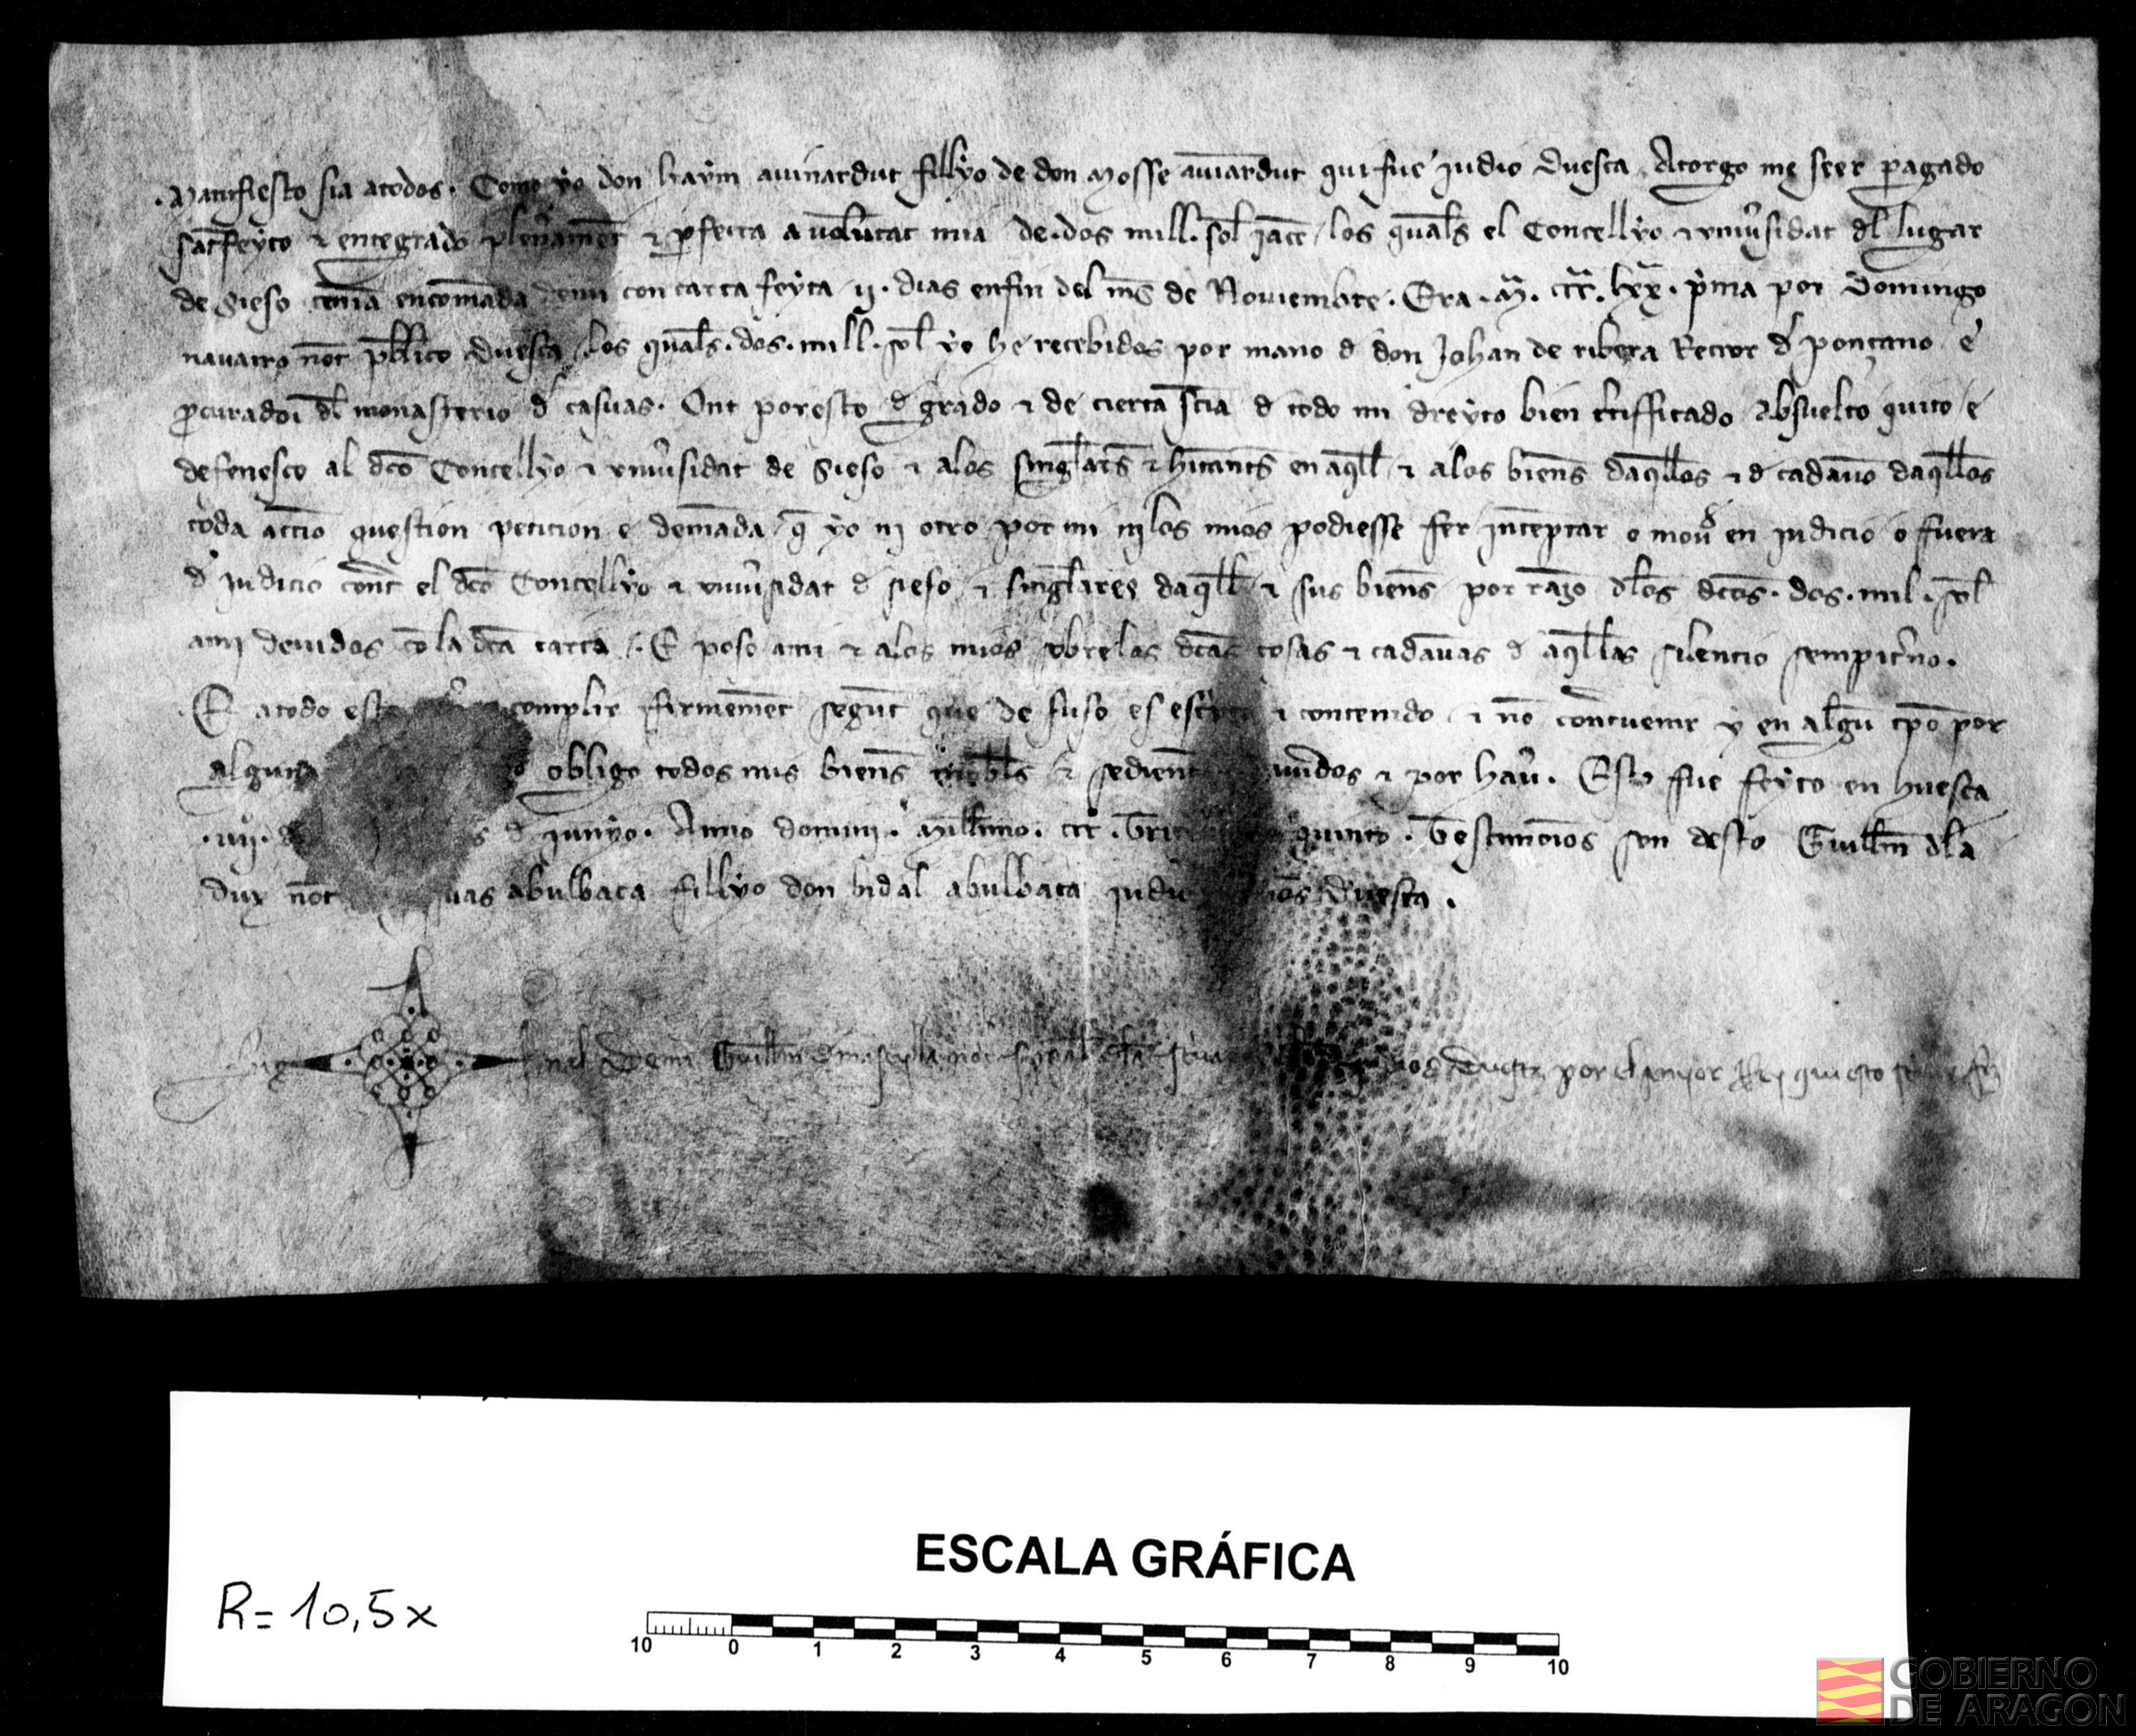 Manifiesto sia a todos. Como yo don haym auinardut fillyo de don Mosse auinardut qui fue judio duesca Atorgo me seer pagado
satffeyto & entegrado plenament & perfeita a uoluntat mia de .dos mill. sol jacc los quals el Concellyo & vniuersidat dl lugar
de Sieso tenia en comanda de mi con carta feyta .ij. dias en fin del mes de Nouiembre. Era .M. ccc. lxx. prima por Domingo
nauarro not publico duesca, los quals .dos. mill. sol yo he recebidos por mano d don Johan de ribera Rector d ponçano e
procurador dl monasterio d casuas. Ont por esto d grado & de cierta scia d todo mi dreyto bien certifficado absuelto quito e
defenesco al dco Concellyo & vniuersidat de Sieso & a los singlars & hitants en aqll & a los biens daqllos & d cadauno daqllos
toda accio question peticion e demada q yo ni otro por mi ni los mios podiesse fer inceptar o mouer en judicio o fuera
d judicio cont el dco Concellyo & vniuersidat d sieso & singlares daqll & sus biens por razo dlos dcos .dos. mil. sol
a mi deuidos co la dca carta. E poso a mi & a los mios sobre las dcas cosas & cadaunas d aqllas silencio sempiterno.
E a todo esto complir firmement segunt que de suso es escripto & contenido & no contuenir y en algun tpo por
alguna obligo todos mis biens mobls & sedient auudos & por hauer. Esto fue feyto en huesca
.iiij. d junyo. Anno domini. Millimo. ccc. quinto. Testimonios son desto Guillm dla
dux not abulbaca fillyo don bidal abulbaca judio duesca.
Sig nel de mi Guillm not duesca por el senyor Rey qui esto
ESCALA GRÁFICA
R= 10,5x
10 0 1 2 3 4 5 6 7 8 9 10
GOBIERNO
DE ARAGON